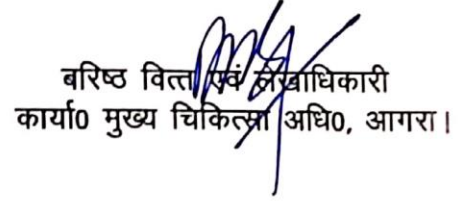 बरिष्ठ वित्त एवं लेखाधिकारी
कार्या0 मुख्य चिकित्सा अधि0, आगरा।